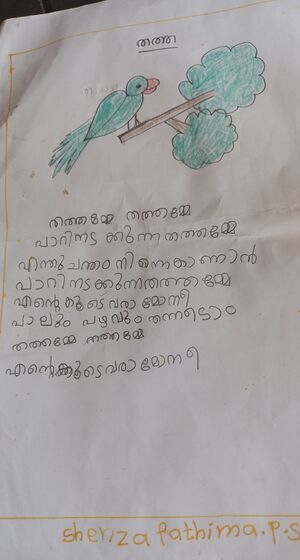 തത്ത
തത്തമ്മേ തത്തമ്മേ
പാറിനട ക്കുന്ന തത്തമ്മേ
എന്തു ചന്തം നി ന്നെകാണാൻ
പാറിനടക്കുന്നതത്തമ്മേ
എന്റെകൂടെ വരാമോനീ
പാലും പഴവും തന്നടാം
തത്തമ്മേ തത്തമ്മേ
എന്റെക്കൂടെവരാമോനീ
shenza fathima.p.s